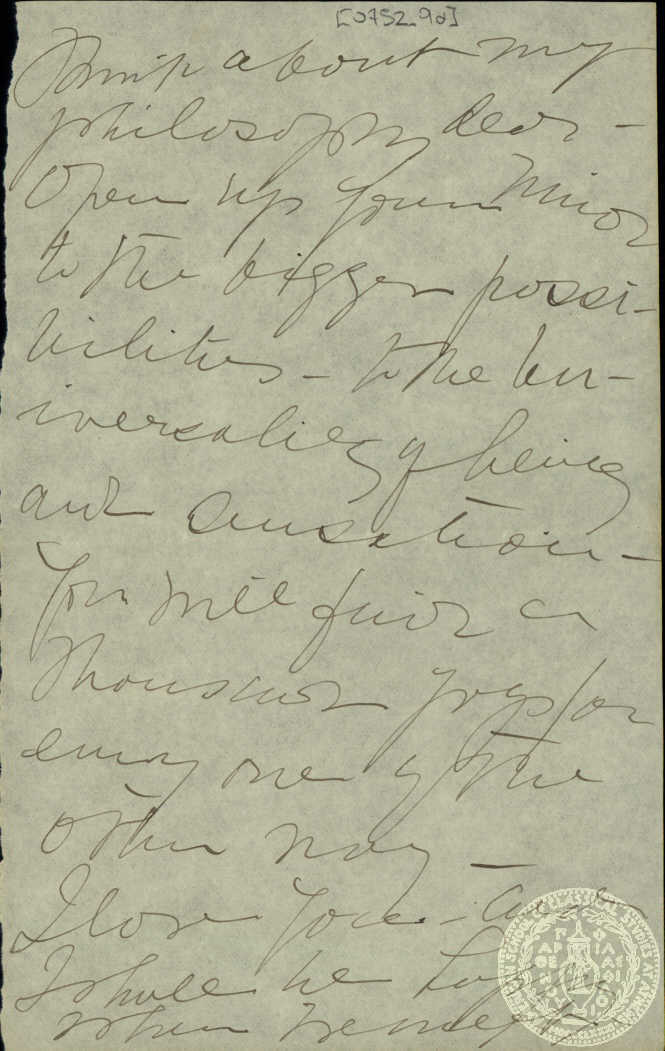 [0752_9d]
Think about my
philosophy dear -
Open up your mind
to the bigger possi-
bilities - to the un-
iversality of being
and sensation -
You will find a
thousand joys for
every one of the
other way -
I love you. -
I shall be
when we meet